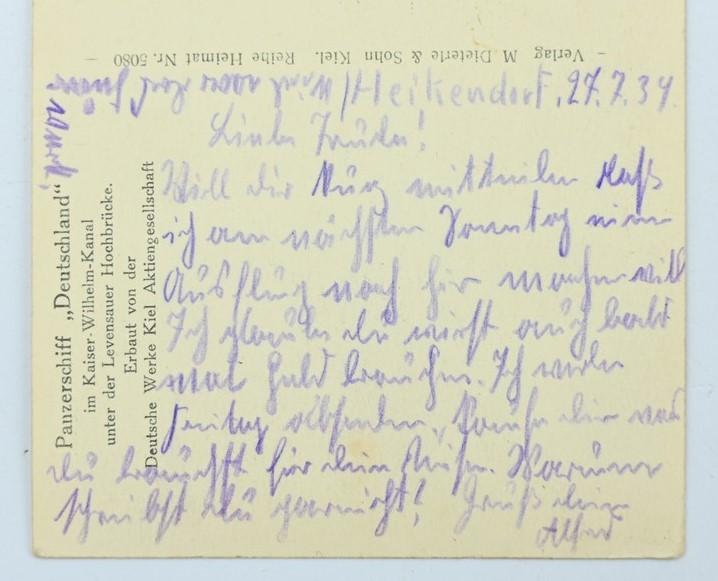 – Verlag M Dieterle & Sohn Kiel. Reihe Heimat Nr. 5080 –
Panzerschiff „Deutschland“
im Kaiser-Wilhelm-Kanal
unter der Levensauer Hochbrücke.
Erbaut von der
Deutsche Werke Kiel Aktiengesellschaft
Heikendorf, 27.7.34.
Liebe Trude!
Will dir kurz mitteilen daß
ich am nächsten Sonntag einen
Ausflug nach hir machen will
Ich glaube du wirst auch bald
mal Geld brauchen. Ich werde
Freitag absenden, kaufe dir was
du brauchst für deine Reise. Warum
schreibst du garnicht! Gruß dein
Alfred